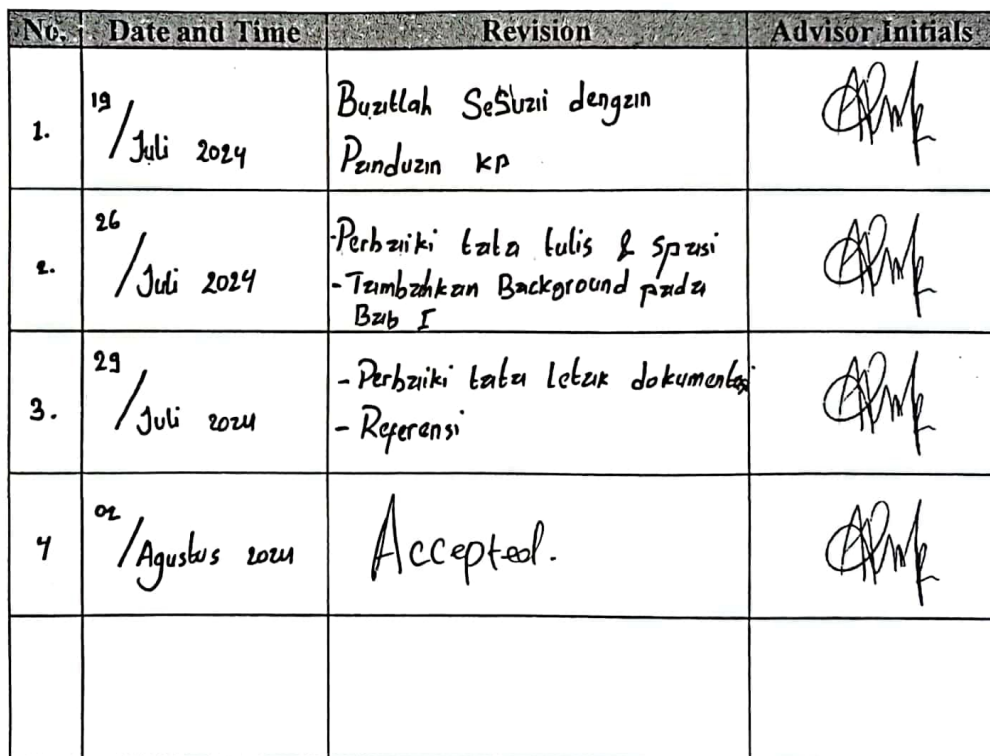 No. Date and Time Revision Advisor Initials
1. 19/Juli 2024 Buatlah Sesuai dengan
Panduan KP
2. 26/Juli 2024 -Perbaiki tata tulis & spasi
-Tambahkan Background pada
Bab I
3. 29/Juli 2024 - Perbaiki tata letak dokumentasi
- Referensi
4 02/Agustus 2024 Accepted.